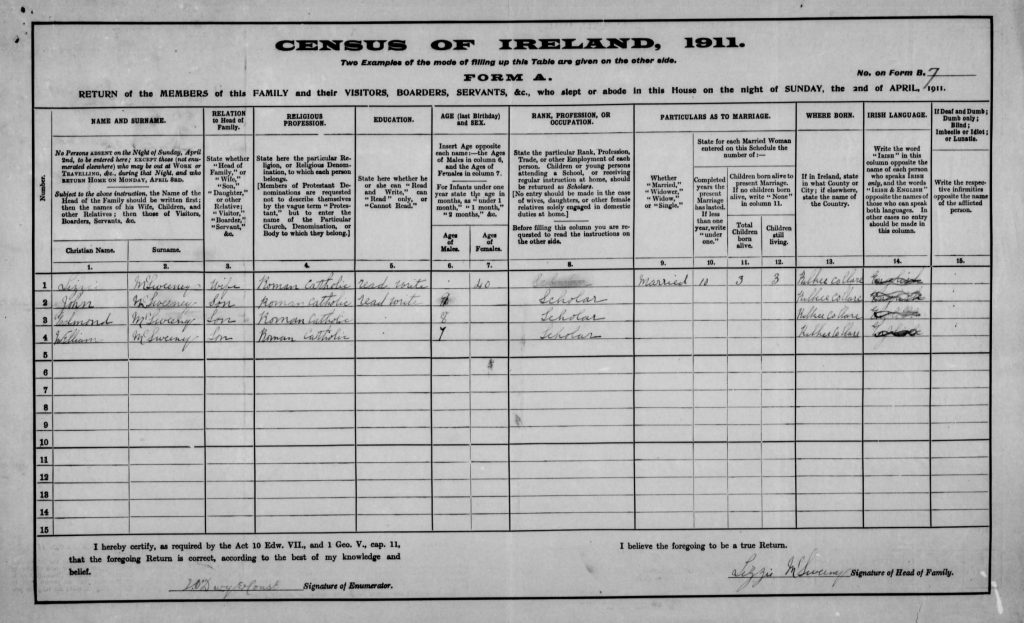 CENSUS OF IRELAND, 1911.
Two Examples of the mode of filling up this Table are given on the other side.
FORM A.
No. on Form B. 7
RETURN of the MEMBERS of this FAMILY and their VISITORS, BOARDERS, SERVANTS, &c., who slept or abode in this House on the night of SUNDAY, the 2nd of APRIL, 1911.
Number.
NAME AND SURNAME.
No Persons ABSENT on the Night of Sunday, April
2nd, to be entered here; EXCEPT those (not enu-
merated elsewhere) who may be out at WORK or
TRAVELLING, &c., during that Night, and who
RETURN HOME ON MONDAY, APRIL 3RD.
Subject to the above instruction, the Name of the
Head of the Family should be written first;
then the names of his Wife, Children, and
other Relatives; then those of Visitors,
Boarders, Servants, &c.
Christian Name.
Surname.
RELATION
to Head of
Family.
State whether
"Head of
Family," or
"Wife,"
"Son,"
"Daughter,"
or other
Relative;
"Visitor,"
"Boarder,"
"Servant,"
&c.
RELIGIOUS
PROFESSION.
State here the particular Re-
ligion, or Religious Denom-
ination, to which each person
belongs.
[Members of Protestant De-
nominations are requested
not to describe themselves
by the vague term "Protes-
tant," but to enter the
name of the Particular
Church, Denomination, or
Body to which they belong.]
EDUCATION.
State here whether he
or she can "Read
and Write," can
"Read" only, or
"Cannot Read."
AGE (last Birthday)
and SEX.
Insert Age opposite
each name:—the Ages
of Males in column 6,
and the Ages of
Females in column 7.
For Infants under one
year state the age in
months, as "under 1
month," "1 month,"
"2 months," &c.
Ages
of
Males.
Ages
of
Females.
RANK, PROFESSION, OR
OCCUPATION.
State the particular Rank, Profession,
Trade, or other Employment of each
person. Children or young persons
attending a School, or receiving
regular instruction at home, should
be returned as Scholars.
[No entry should be made in the case
of wives, daughters, or other female
relatives solely engaged in domestic
duties at home.]
Before filling this column you are re-
quested to read the instructions on
the other side.
PARTICULARS AS TO MARRIAGE.
Whether
"Married,"
"Widower,"
"Widow,"
or "Single."
State for each Married Woman
entered on this Schedule the
number of:—
Completed
years the
present
Marriage
has lasted.
If less
than one
year, write
"under
one."
Children born alive to
present Marriage.
If no children born
alive, write "None"
in column 11.
Total
Children
born
alive.
Children
still
living.
WHERE BORN.
If in Ireland, state
in what County or
City; if elsewhere,
state the name of
the Country.
IRISH LANGUAGE.
Write the word
"IRISH" in this
column opposite the
name of each person
who speaks IRISH
only, and the words
"IRISH & ENGLISH"
opposite the names of
those who can speak
both languages. In
other cases no entry
should be made in
this column.
If Deaf and Dumb;
Dumb only;
Blind;
Imbecile or Idiot;
or Lunatic.
Write the respec-
tive infirmities
opposite the name
of the afflicted
person.
1. 2. 3. 4. 5. 6. 7. 8. 9. 10. 11. 12. 13. 14. 15.
1 Lizzie McSweeney Wife Roman Catholic read write 40 Married 10 3 3 Kilkee Co Clare
2 John McSweeney Son Roman Catholic read write Scholar Kilkee Co Clare
3 Edmond McSweeny Son Roman Catholic 8 Scholar Kilkee Co Clare
4 William McSweeny Son Roman Catholic 7 Scholar Kilkee Co Clare
5
6
7
8
9
10
11
12
13
14
15
I hereby certify, as required by the Act 10 Edw. VII., and 1 Geo. V., cap. 11,
that the foregoing Return is correct, according to the best of my knowledge and
belief.
Signature of Enumerator.
I believe the foregoing to be a true Return.
Lizzie McSweeny Signature of Head of Family.